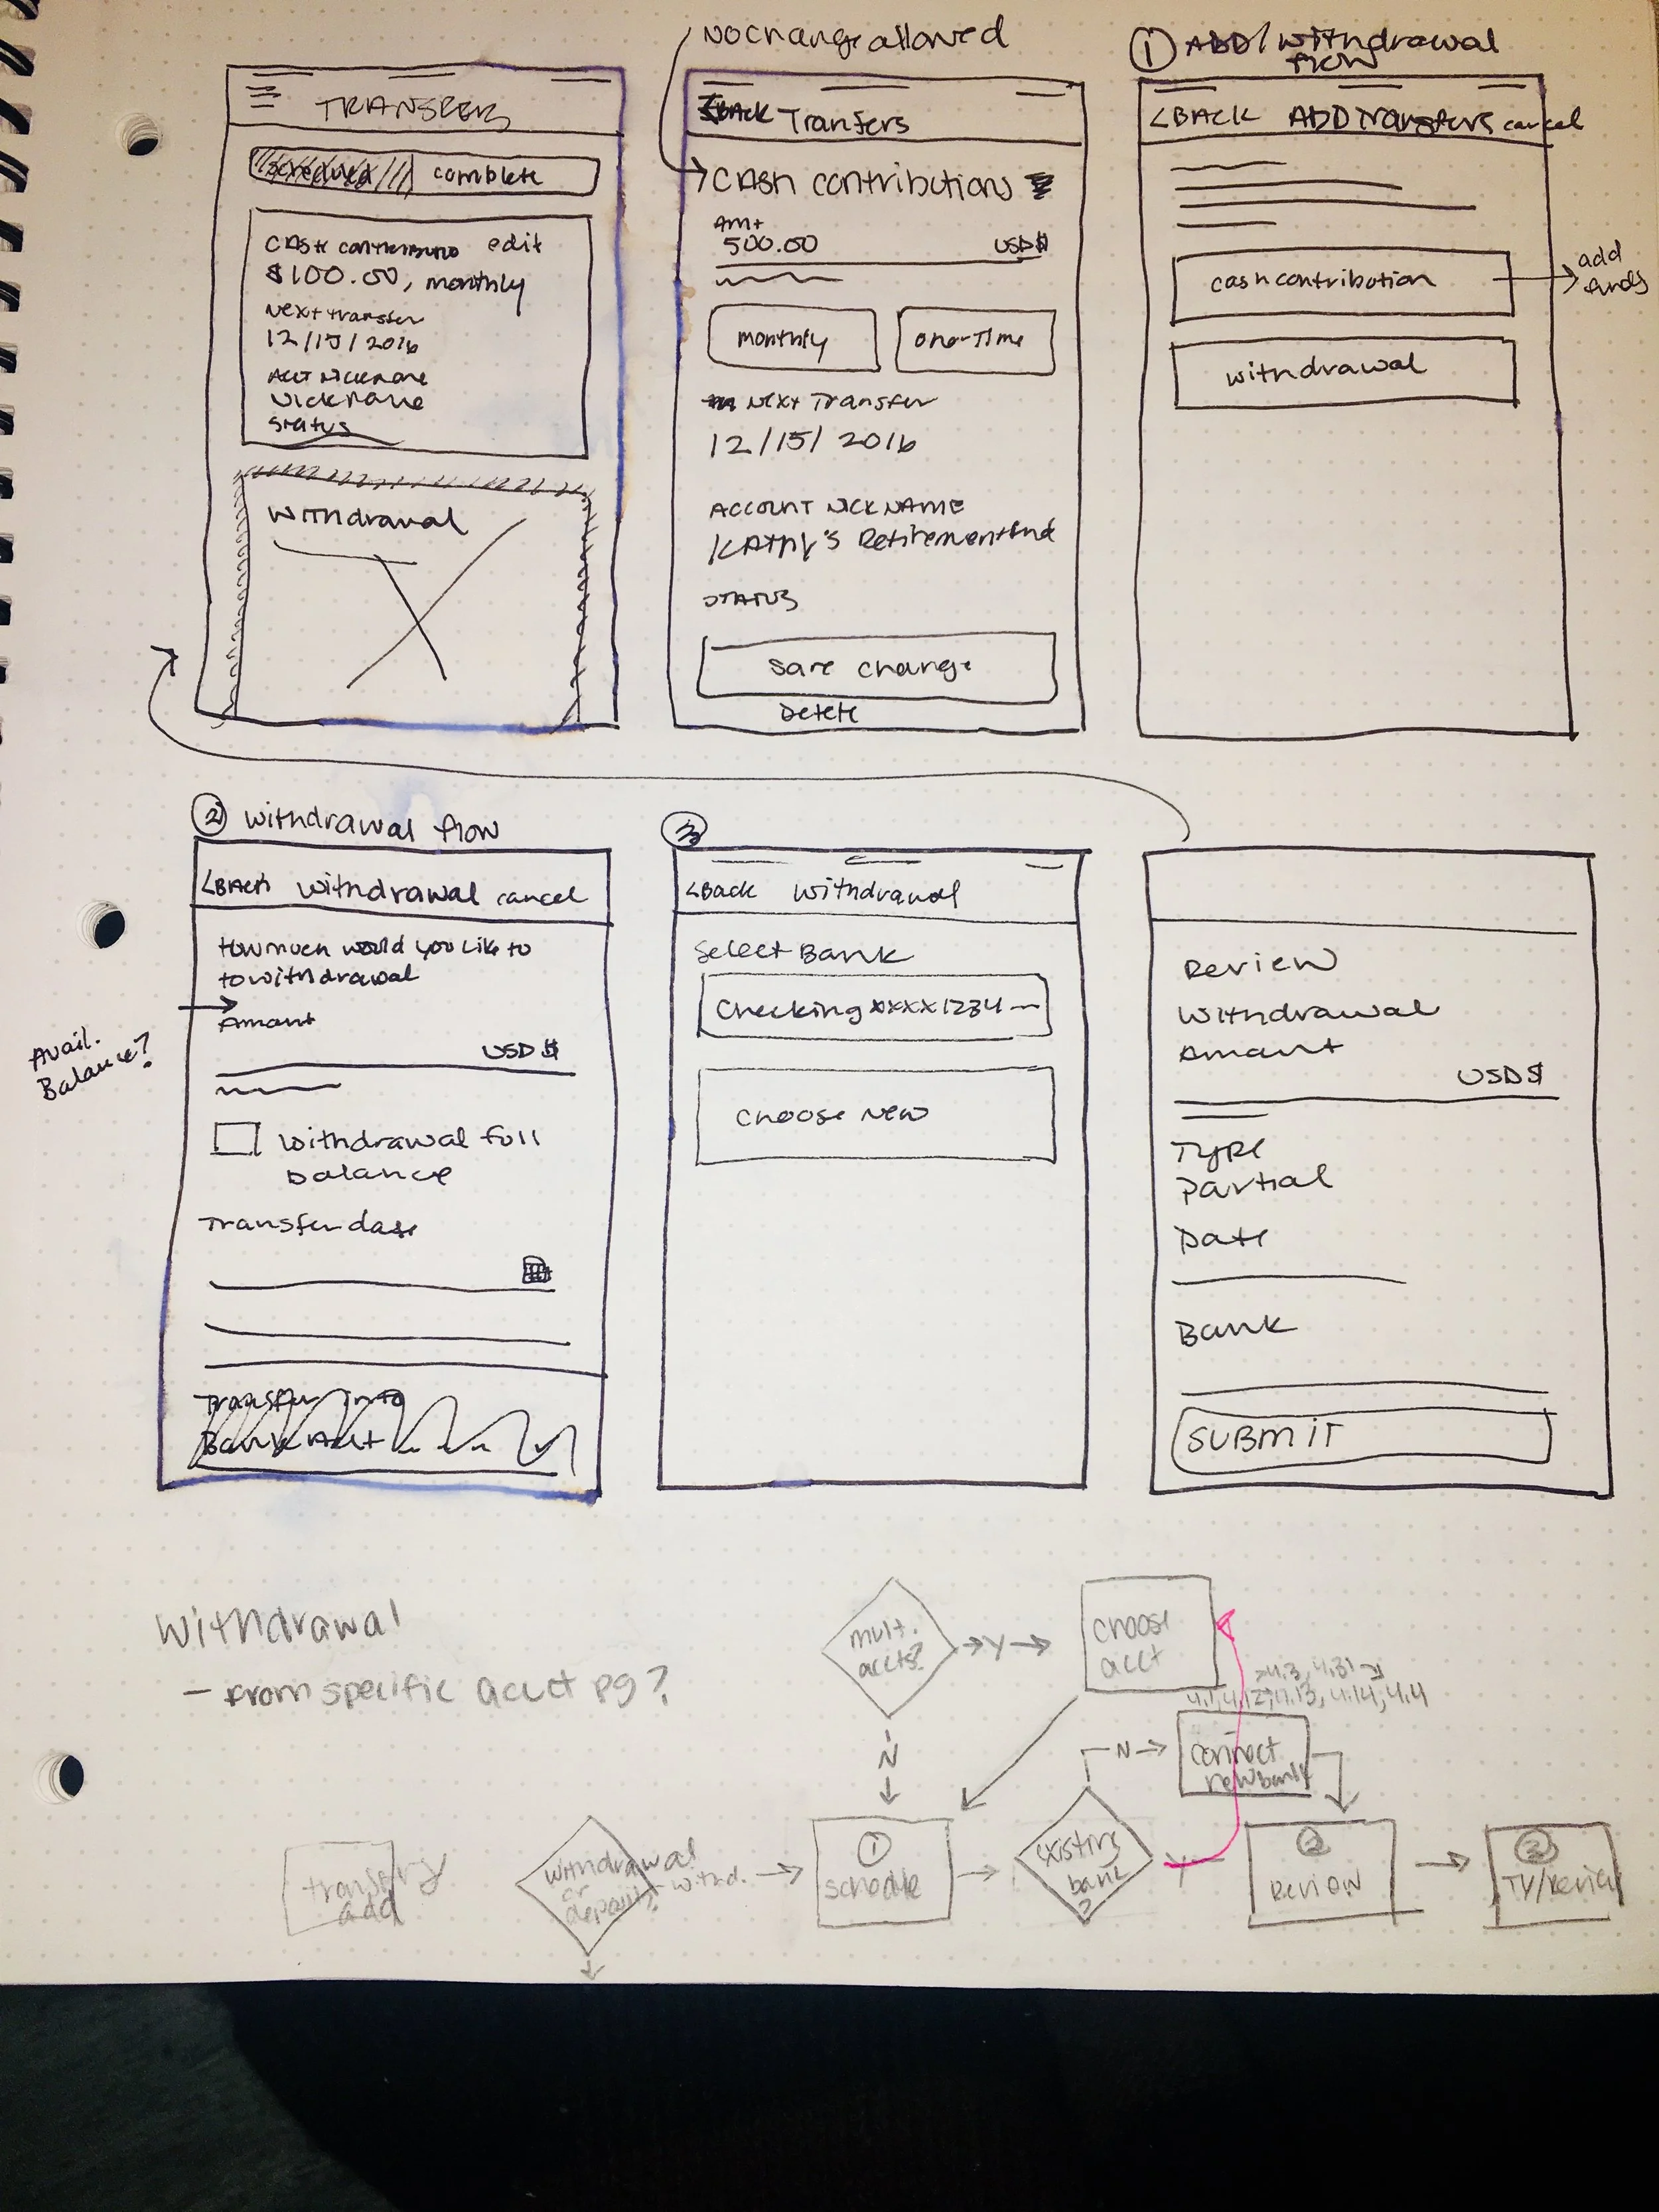 No change allowed
① ADD/withdrawal
flow
TRANSFERS
scheduled complete
Cash contributions edit
$100.00, monthly
Next transfer
12/15/2016
Acct Nickname
Nickname
Status
Withdrawal
<BACK Tranfers
Cash contributions
Amt
500.00 USD$
monthly one-Time
Next Transfer
12/15/2016
ACCOUNT NICKNAME
KATHY'S Retirement Fnd
STATUS
Save change
Delete
<BACK ADD Transfers cancel
cash contribution
add
funds
withdrawal
② withdrawal flow
<BACK withdrawal cancel
How much would you like to
to withdrawal
Amount
USD $
Avail.
Balance?
withdrawal full
balance
Transfer date
Transfer into
Bank Acct
③
<Back withdrawal
Select Bank
Checking xxxx1234
Choose New
Review
Withdrawal
Amount
USD$
Type
Partial
Date
Bank
SUBMIT
Withdrawal
- From specific acct pg?
mult.
accts?
Y
choose
acct
4.3, 4.31
4.1, 4.12, 4.13, 4.14, 4.4
N
N
connect
new bank
transfers
add
withdrawal
or
deposit?
withd.
①
schedule
existing
bank
?
Y
②
Review
③